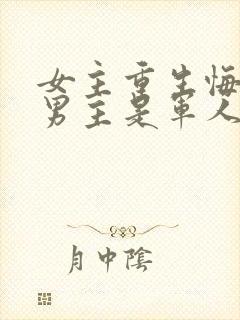 女主重生悔
男主是军人
月中阴